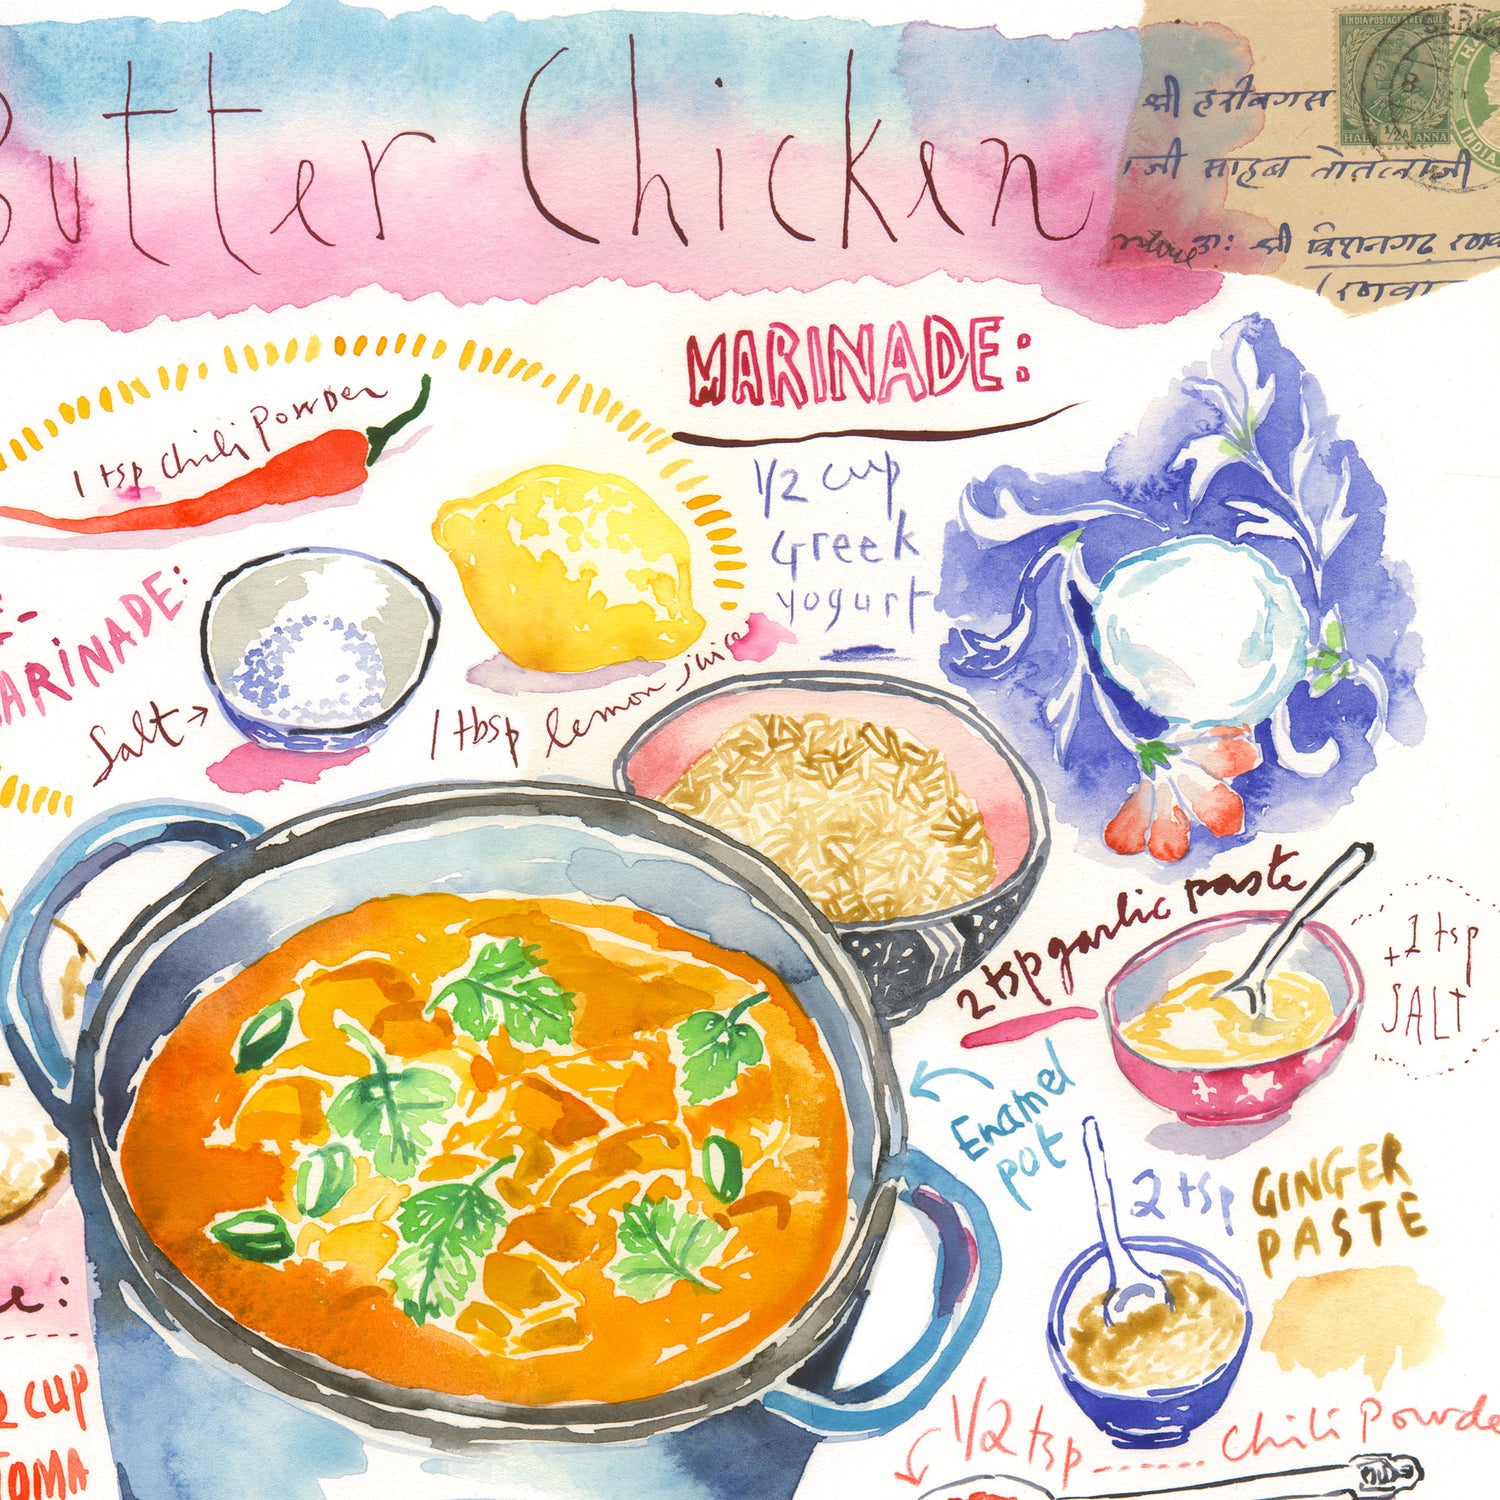 Butter Chicken
INDIA POSTAGE & REVENUE
HALF 1/2A ANNA
INDIA
श्री हरीबगस
जी साहब तोतलाजी
श्री किशनगढ़
MARINADE:
1 tsp chili Powder
1/2 cup
Greek
yogurt
ARINADE:
Salt →
1 tbsp lemon juice
2 tsp garlic paste
+ 1 tsp
SALT
Enamel
pot
2 tsp GINGER
PASTE
cup
TOMA
1/2 tsp ....... chili Powde